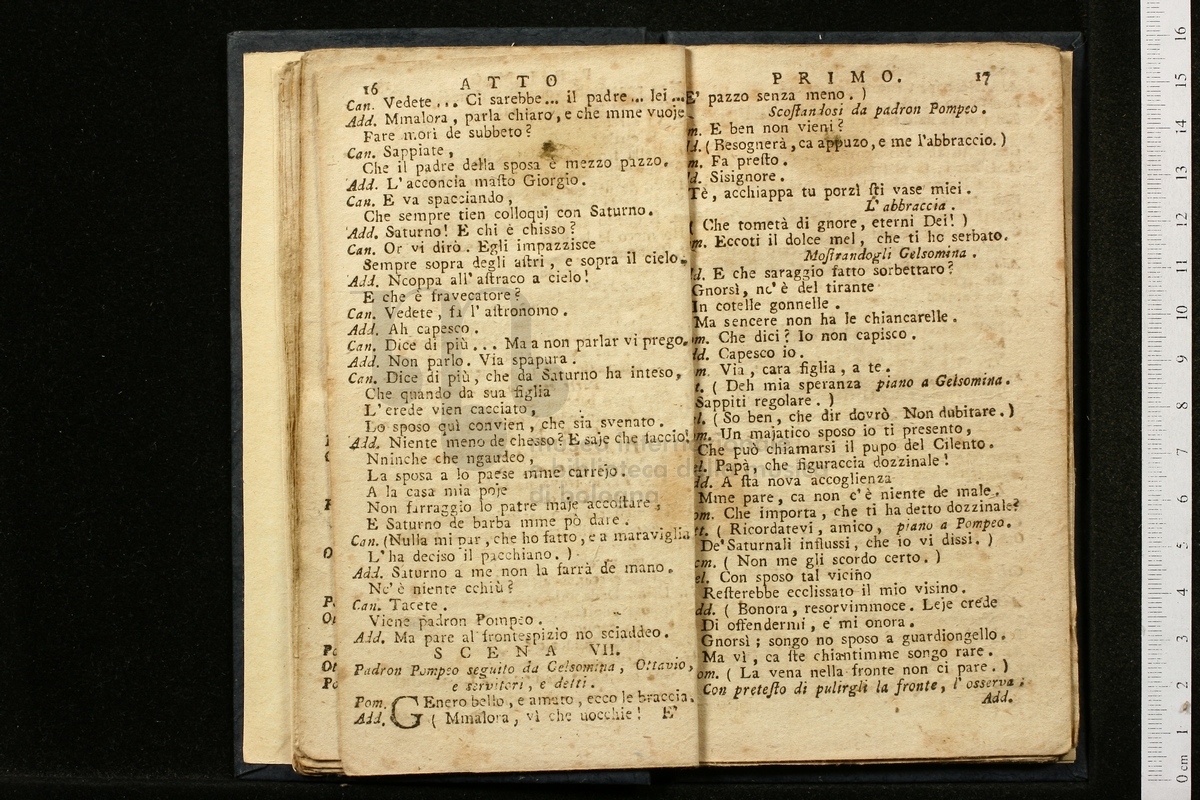 16 ATTO
Can. Vedete... Ci sarebbe... il padre... lei...
Add. Mmalora, parla chiaro, e che mme vuoje
Fare mori de subbeto?
Can. Sappiate,
Che il padre della sposa è mezzo pazzo.
Add. L'acconcia masto Giorgio.
Can. E va spacciando,
Che sempre tien colloquj con Saturno.
Add. Saturno! E chi è chisso?
Can. Or vi dirò. Egli impazzisce
Sempre sopra degli astri, e sopra il cielo.
Add. Ncoppa all'astraco a cielo!
E che è fravecatore?
Can. Vedete, fa l'astronomo.
Add. Ah capesco.
Can. Dice di più... Ma a non parlar vi prego.
Add. Non parlo. Via spapura.
Can. Dice di più, che da Saturno ha inteso,
Che quando da sua figlia
L'erede vien cacciato,
Lo sposo quì convien, che sia svenato.
Add. Niente meno de chesso? E saje che faccio!
Nninche che ngaudeo,
La sposa a lo paese mme carrejo.
A la casa mia poje
Non farraggio lo patre maje accostare,
E Saturno de barba mme pò dare.
Can. (Nulla mi par, che ho fatto, e a maraviglia
L'ha deciso il pacchiano.)
Add. Saturno a me non la farrà de mano.
Nc'è niente cchiù?
Can. Tacete.
Viene padron Pompeo.
Add. Ma pare al frontespizio no sciaddeo.
SCENA VII.
Padron Pompeo seguito da Gelsomina, Ottavio,
e servitori, e detti.
Pom. GEnero bello, e amato, ecco le braccia.
Add. ( Mmalora, vì che uocchie! E'
PRIMO. 17
E' pazzo senza meno. )
Scostandosi da padron Pompeo.
m. E ben non vieni?
d. ( Besognerà, ca appuzo, e me l'abbraccio. )
m. Fa presto.
d. Sisignore.
Tè, acchiappa tu porzì sti vase miei.
L'abbraccia.
( Che tometà di gnore, eterni Dei! )
m. Eccoti il dolce mel, che ti ho serbato.
Mostrandogli Gelsomina.
d. E che saraggio fatto sorbettaro?
Gnorsì, nc'è del tirante
In cotelle gonnelle.
Ma sencere non ha le chiancarelle.
m. Che dici? Io non capisco.
dd. Capesco io.
m. Via, cara figlia, a te.
t. ( Deh mia speranza piano a Gelsomina.
Sappiti regolare. )
l. ( So ben, che dir dovrò. Non dubitare. )
m. Un majatico sposo io ti presento,
Che può chiamarsi il pupo del Cilento.
el. Papà, che figuraccia dozzinale!
dd. A sta nova accoglienza
Mme pare, ca non c'è niente de male.
om. Che importa, che ti ha detto dozzinale?
tt. ( Ricordatevi, amico, piano a Pompeo.
De' Saturnali influssi, che io vi dissi. )
om. ( Non me gli scordo certo. )
el. Con sposo tal vicino
Resterebbe ecclissato il mio visino.
dd. ( Bonora, resorvimmoce. Leje crede
Di offendermi, e mi onora.
Gnorsì; songo no sposo a guardiongello.
Ma vì, ca ste chiantimme songo rare.
om. ( La vena nella fronte non ci pare. )
Con pretesto di pulirgli la fronte, l'osserva.
Add.